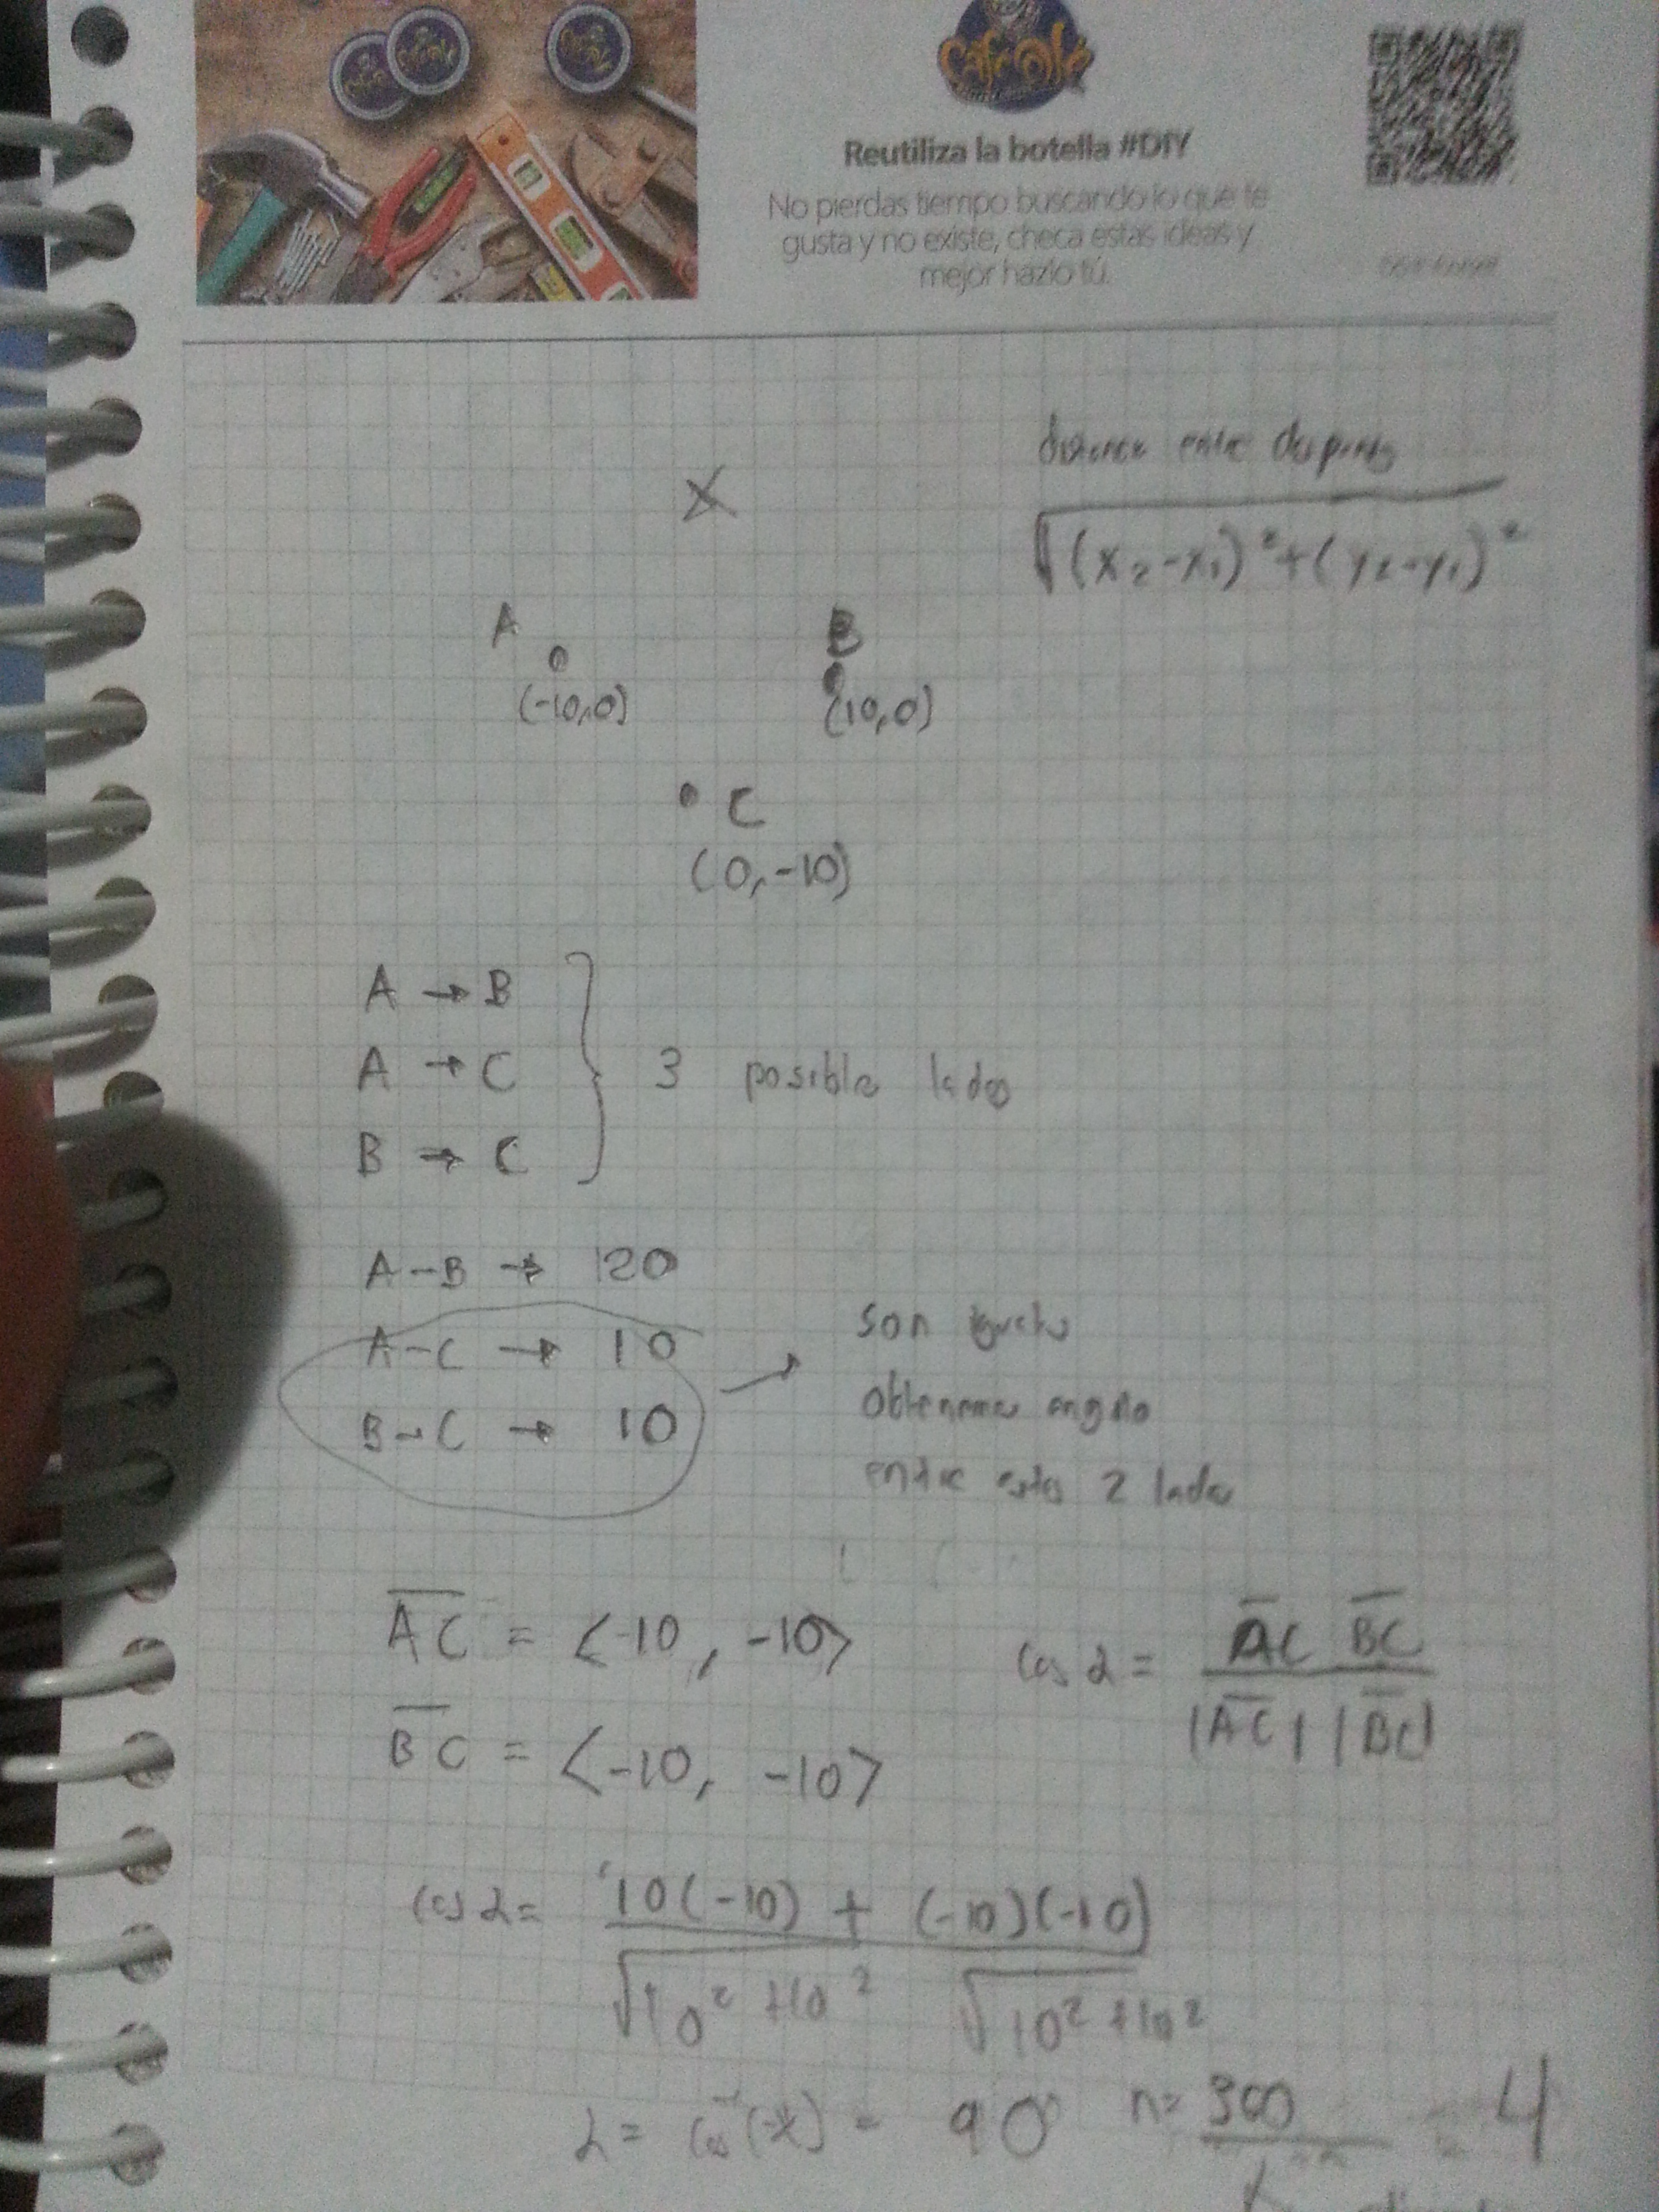 Café Olé
Reutiliza la botella #DIY
No pierdas tiempo buscando lo que te
gusta y no existe, checa estas ideas y
mejor hazlo tú.
distancia entre dos puntos
√(x₂-x₁)²+(y₂-y₁)²
X
A
B
(-10,0)
(10,0)
C
(0,-10)
A → B
A → C
B → C
3 posible lados
A-B → 20
A-C → 10
B-C → 10
son iguales
obtenemos angulo
entre estos 2 lados
AC = <-10, -10>
BC = <-10, -10>
cos α = AC BC / |AC| |BC|
cos α = 10(-10) + (-10)(-10)
√10² +10² √10² +10²
90° n= 4